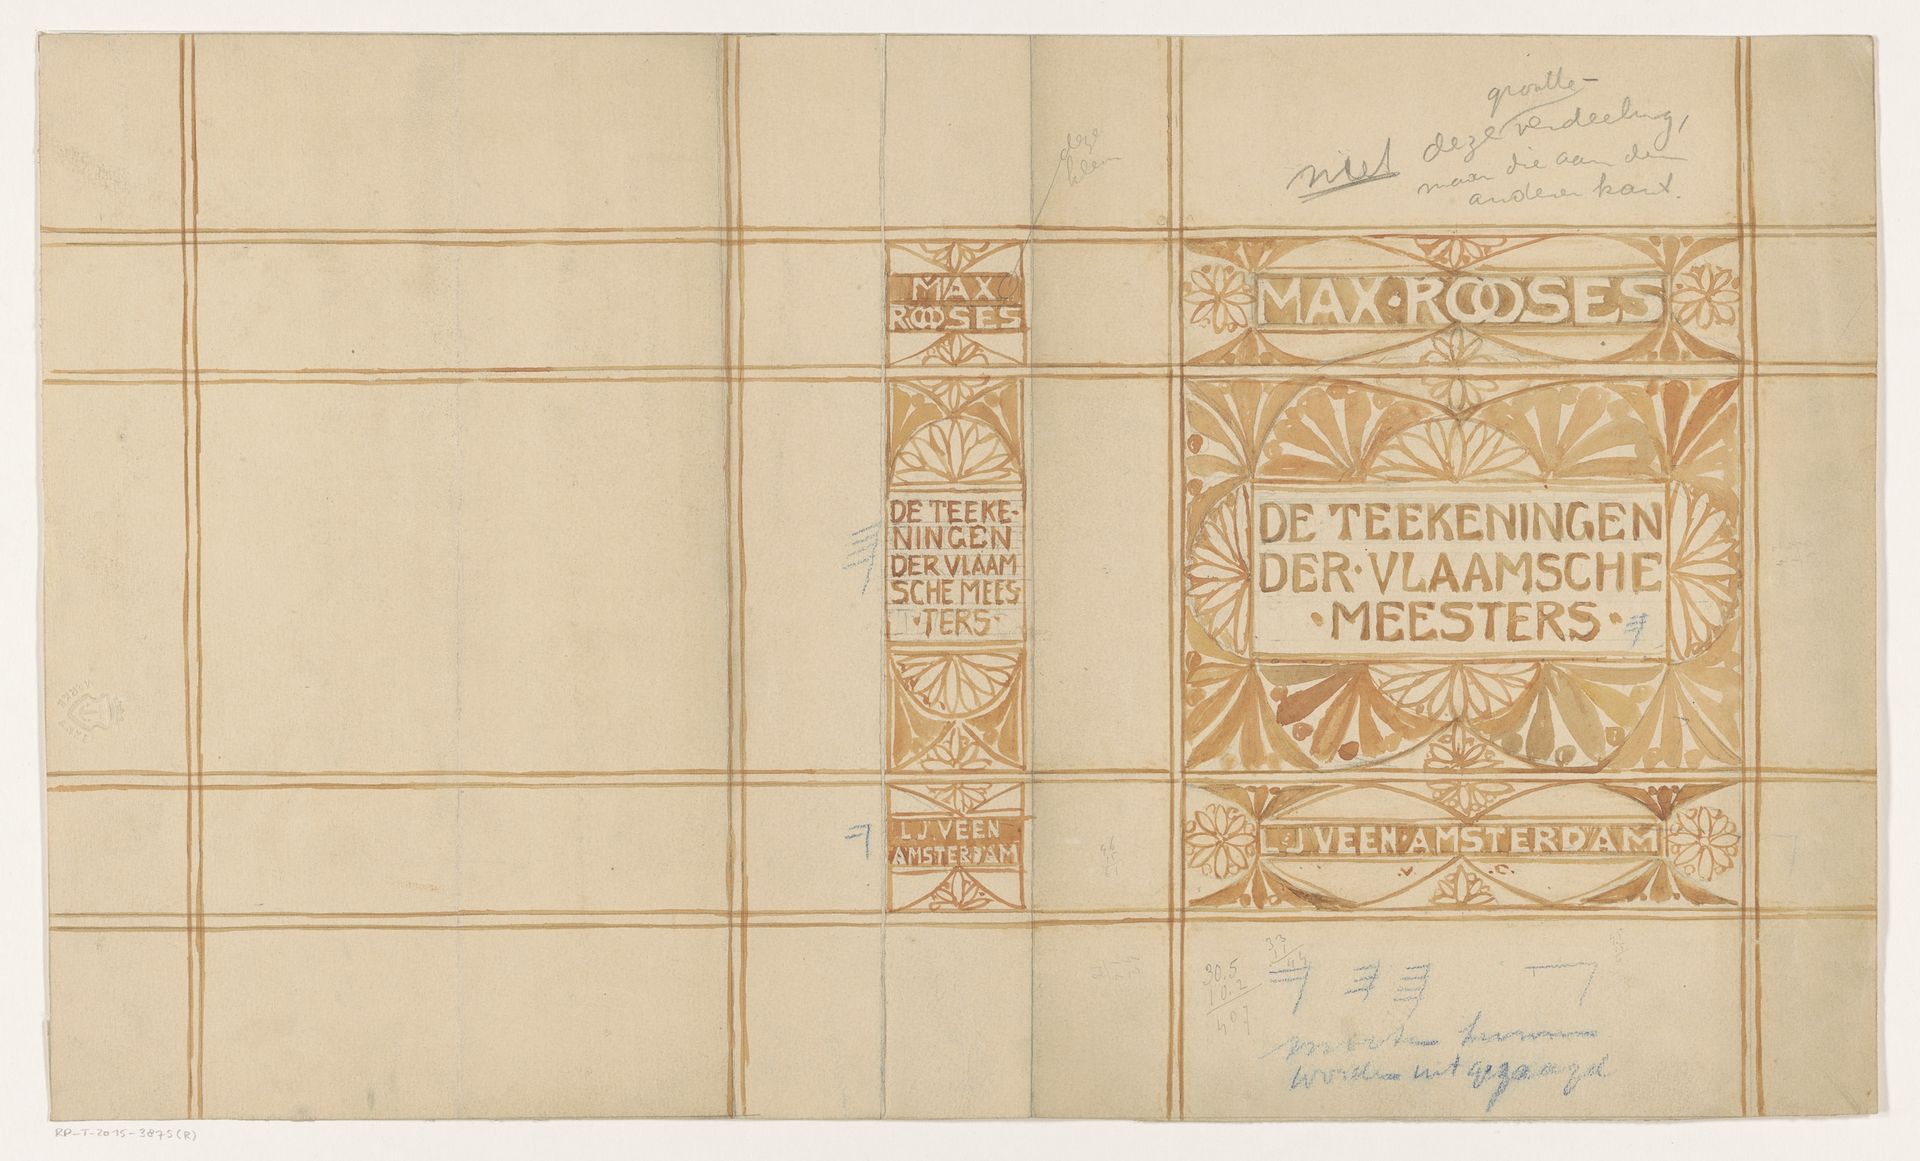 groutte-
niet deze verdeeling,
maar die aan den
anderen kant.
deze
MAX
ROOSES
DE TEEKE-
NINGEN
DER VLAAM
SCHE MEES
·TERS·
L.J. VEEN
AMSTERDAM
MAX·ROOSES
DE TEEKENINGEN
DER·VLAAMSCHE
·MEESTERS·
L·J VEEN·AMSTERDAM
.V. .C.
30.5
10.2
407
worden uitgezaagd
RP-T-2015-3875(R)